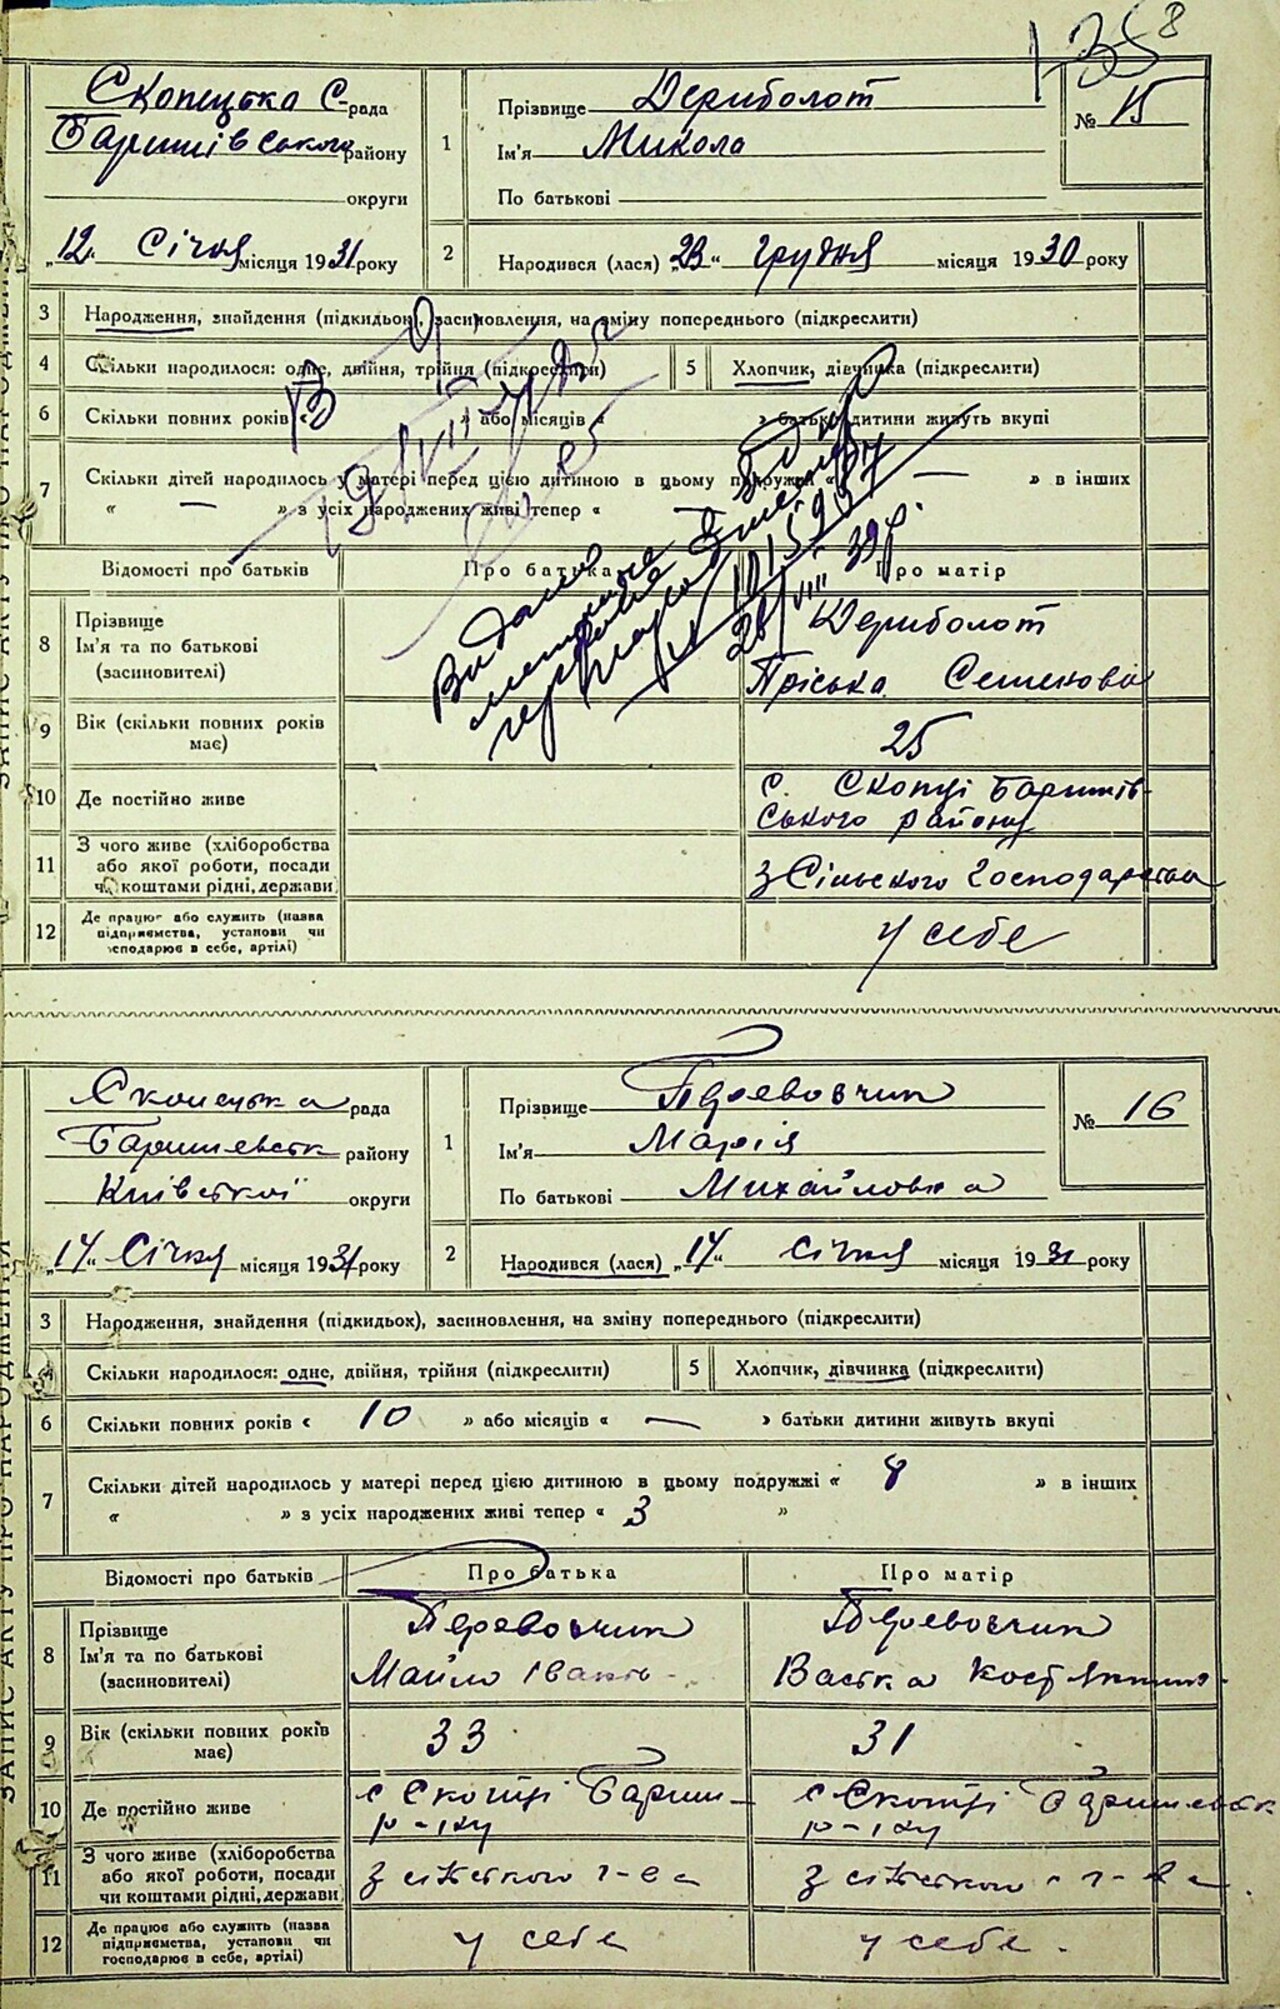 1358
Скопецька С-рада
Баришівського району
округи
„12“ Січня місяця 1931 року
1
Прізвище Дериболот
Ім'я Микола
По батькові
№ 15
2
Народився (лася) „23“ грудня місяця 1930 року
3 Народження, знайдення (підкидьок), засиновлення, на зміну попереднього (підкреслити)
4 Скільки народилося: одне, двійня, трійня (підкреслити)
5 Хлопчик, дівчинка (підкреслити)
6 Скільки повних років « » або місяців « » батьки дитини живуть вкупі
7 Скільки дітей народилось у матері перед цією дитиною в цьому подружжі « — » в інших
« — » з усіх народжених живі тепер « —
Видано
28/VIII 39 р.
Відомості про батьків Про батька Про матір
8 Прізвище
Ім'я та по батькові
(засиновителі)
Дериболот
Пріська Семеновна
9 Вік (скільки повних років
має)
25
10 Де постійно живе
с. Скопці Баришів-
ського району
11 З чого живе (хліборобства
або якої роботи, посади
чи коштами рідні, держави)
з Сільського Господарства
12 Де працює або служить (назва
підприємства, установи чи
господарює в себе, артілі)
у себе
Скопецька рада
Баришевськ району
Київської округи
„14“ Січня місяця 1931 року
1
Прізвище Перевозчик
Ім'я Марія
По батькові Михайловна
№ 16
2
Народився (лася) „14“ січня місяця 1931 року
3 Народження, знайдення (підкидьок), засиновлення, на зміну попереднього (підкреслити)
4 Скільки народилося: одне, двійня, трійня (підкреслити)
5 Хлопчик, дівчинка (підкреслити)
6 Скільки повних років « 10 » або місяців « — » батьки дитини живуть вкупі
7 Скільки дітей народилось у матері перед цією дитиною в цьому подружжі « 8 » в інших
« » з усіх народжених живі тепер « 3 »
Відомості про батьків Про батька Про матір
8 Прізвище
Ім'я та по батькові
(засиновителі)
Перевозчик
Перевозчик
Васька
9 Вік (скільки повних років
має)
33
31
10 Де постійно живе
с Скопці Бариш-
р-іну
с Скопці Баришевськ
р-іну
11 З чого живе (хліборобства
або якої роботи, посади
чи коштами рідні, держави)
з сільського г-ва
з сільського г-ва
12 Де працює або служить (назва
підприємства, установи чи
господарює в себе, артілі)
у себе
у себе.
ЗАПИС АКТУ ПРО НАРОДЖЕННЯ